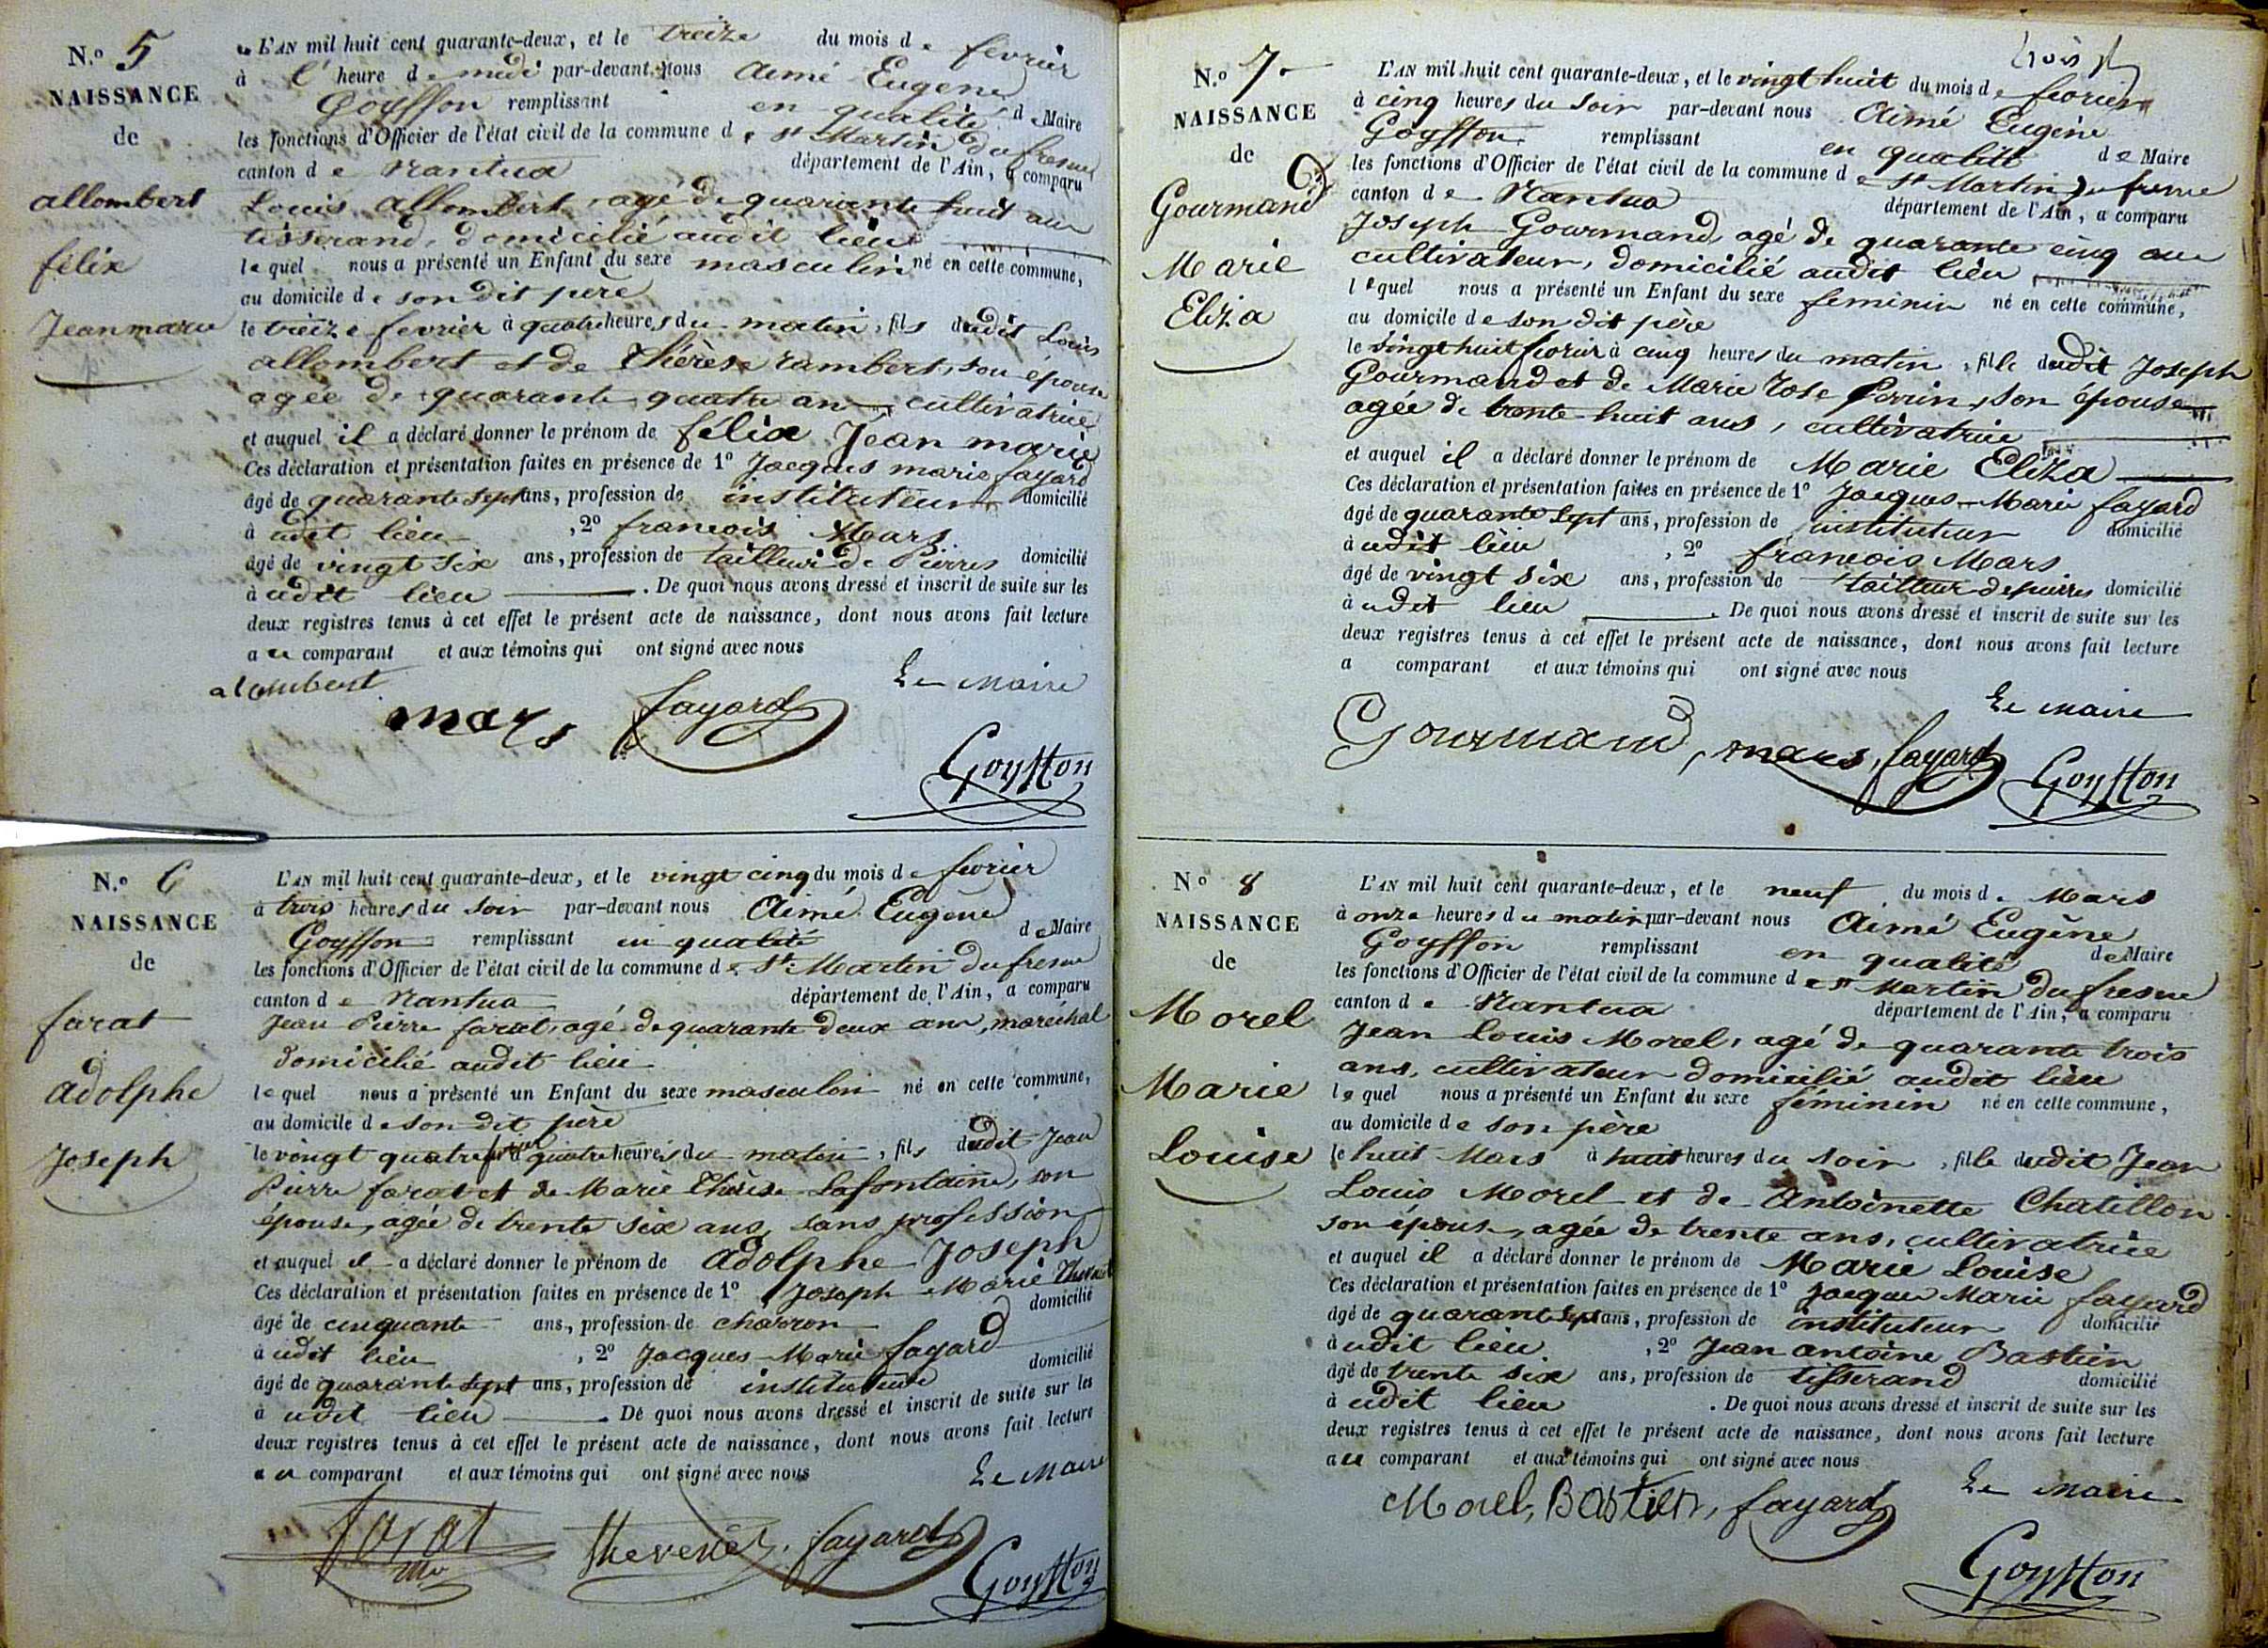 N.º 5
NAISSANCE
de
allombert
félix
Jean marie
L'AN mil huit cent quarante-deux, et le treize du mois de février
à l'heure de midi par-devant nous Aimé Eugène
Goyffon remplissant en qualité de Maire
les fonctions d'Officier de l'état civil de la commune de St Martin du fresne
canton de Nantua département de l'Ain, a comparu
Louis allombert, agé de quarante huit ans
tisserand, domicilié audit lieu
lequel nous a présenté un Enfant du sexe masculin né en cette commune,
au domicile de son dit père
le treize fevrier à quatre heures du matin, fils dudit Louis
allombert et de thérèse rambert, son épouse
agée de quarante quatre ans, cultivatrice
et auquel il a déclaré donner le prénom de félix Jean marie
Ces déclaration et présentation faites en présence de 1º Jacques marie fayard
âgé de quarante sept ans, profession de instituteur domicilié
à udit lieu, 2º francois Mars
âgé de vingt six ans, profession de tailleur de Pierres domicilié
à udit lieu. De quoi nous avons dressé et inscrit de suite sur les
deux registres tenus à cet effet le présent acte de naissance, dont nous avons fait lecture
a u comparant et aux témoins qui ont signé avec nous
alombert
mars fayard Le Maire
Goyffon
N.º 6
NAISSANCE
de
farat
adolphe
Joseph
L'AN mil huit cent quarante-deux, et le vingt cinq du mois de fevrier
à trois heures du soir par-devant nous Aimé Eugène
Goyffon remplissant en qualité de Maire
les fonctions d'Officier de l'état civil de la commune de St Martin du fresne
canton de Nantua département de l'Ain, a comparu
Jean Pierre farat, agé de quarante deux ans, maréchal
domicilié audit lieu
lequel nous a présenté un Enfant du sexe masculin né en cette commune,
au domicile de son dit père
le vingt quatre fevrier à quatre heures du matin, fils dudit Jean
Pierre farat et de Marie thérèse Lafontaine, son
épouse, agée de trente six ans, sans profession
et auquel il a déclaré donner le prénom de adolphe Joseph
Ces déclaration et présentation faites en présence de 1º Joseph Marie
âgé de cinquante ans, profession de charron domicilié
à udit lieu, 2º Jacques Marie fayard
âgé de quarante sept ans, profession de instituteur domicilié
à udit lieu. De quoi nous avons dressé et inscrit de suite sur les
deux registres tenus à cet effet le présent acte de naissance, dont nous avons fait lecture
a u comparant et aux témoins qui ont signé avec nous
Le Maire
farat fayard
Goyffon
N.º 7
NAISSANCE
de
Gourmand
Marie
Eliza
L'AN mil huit cent quarante-deux, et le vingt huit du mois de fevrier
à cinq heures du soir par-devant nous Aimé Eugène
Goyffon remplissant en qualité de Maire
les fonctions d'Officier de l'état civil de la commune de St Martin du fresne
canton de Nantua département de l'Ain, a comparu
Joseph Gourmand, agé de quarante cinq ans
cultivateur, domicilié audit lieu
lequel nous a présenté un Enfant du sexe feminin né en cette commune,
au domicile de son dit père
le vingt huit fevrier à cinq heures du matin, fille dudit Joseph
Gourmand et de Marie rose Perrin, son épouse
agée de trente huit ans, cultivatrice
et auquel il a déclaré donner le prénom de Marie Eliza
Ces déclaration et présentation faites en présence de 1º Jacques Marie fayard
âgé de quarante sept ans, profession de instituteur domicilié
à udit lieu, 2º francois Mars
âgé de vingt six ans, profession de tailleur de pierres domicilié
à udit lieu. De quoi nous avons dressé et inscrit de suite sur les
deux registres tenus à cet effet le présent acte de naissance, dont nous avons fait lecture
a comparant et aux témoins qui ont signé avec nous
Le maire
Gourmand, mars, fayard Goyffon
Nº 8
NAISSANCE
de
Morel
Marie
Louise
L'AN mil huit cent quarante-deux, et le neuf du mois de Mars
à onze heures du matin par-devant nous Aimé Eugène
Goyffon remplissant en qualité de Maire
les fonctions d'Officier de l'état civil de la commune de St Martin du fresne
canton de Nantua département de l'Ain, a comparu
Jean Louis Morel, agé de quarante trois
ans, cultivateur domicilié audit lieu
lequel nous a présenté un Enfant du sexe féminin né en cette commune,
au domicile de son père
le huit Mars à huit heures du soir, fille dudit Jean
Louis Morel et de Antoinette Chatillon
son épouse, agée de trente ans, cultivatrice
et auquel il a déclaré donner le prénom de Marie Louise
Ces déclaration et présentation faites en présence de 1º Jacques Marie fayard
âgé de quarante sept ans, profession de instituteur domicilié
à udit lieu, 2º Jean antoine Bastien
âgé de trente six ans, profession de tisserand domicilié
à udit lieu. De quoi nous avons dressé et inscrit de suite sur les
deux registres tenus à cet effet le présent acte de naissance, dont nous avons fait lecture
a u comparant et aux témoins qui ont signé avec nous
Le maire
Morel, Bastien, fayard
Goyffon